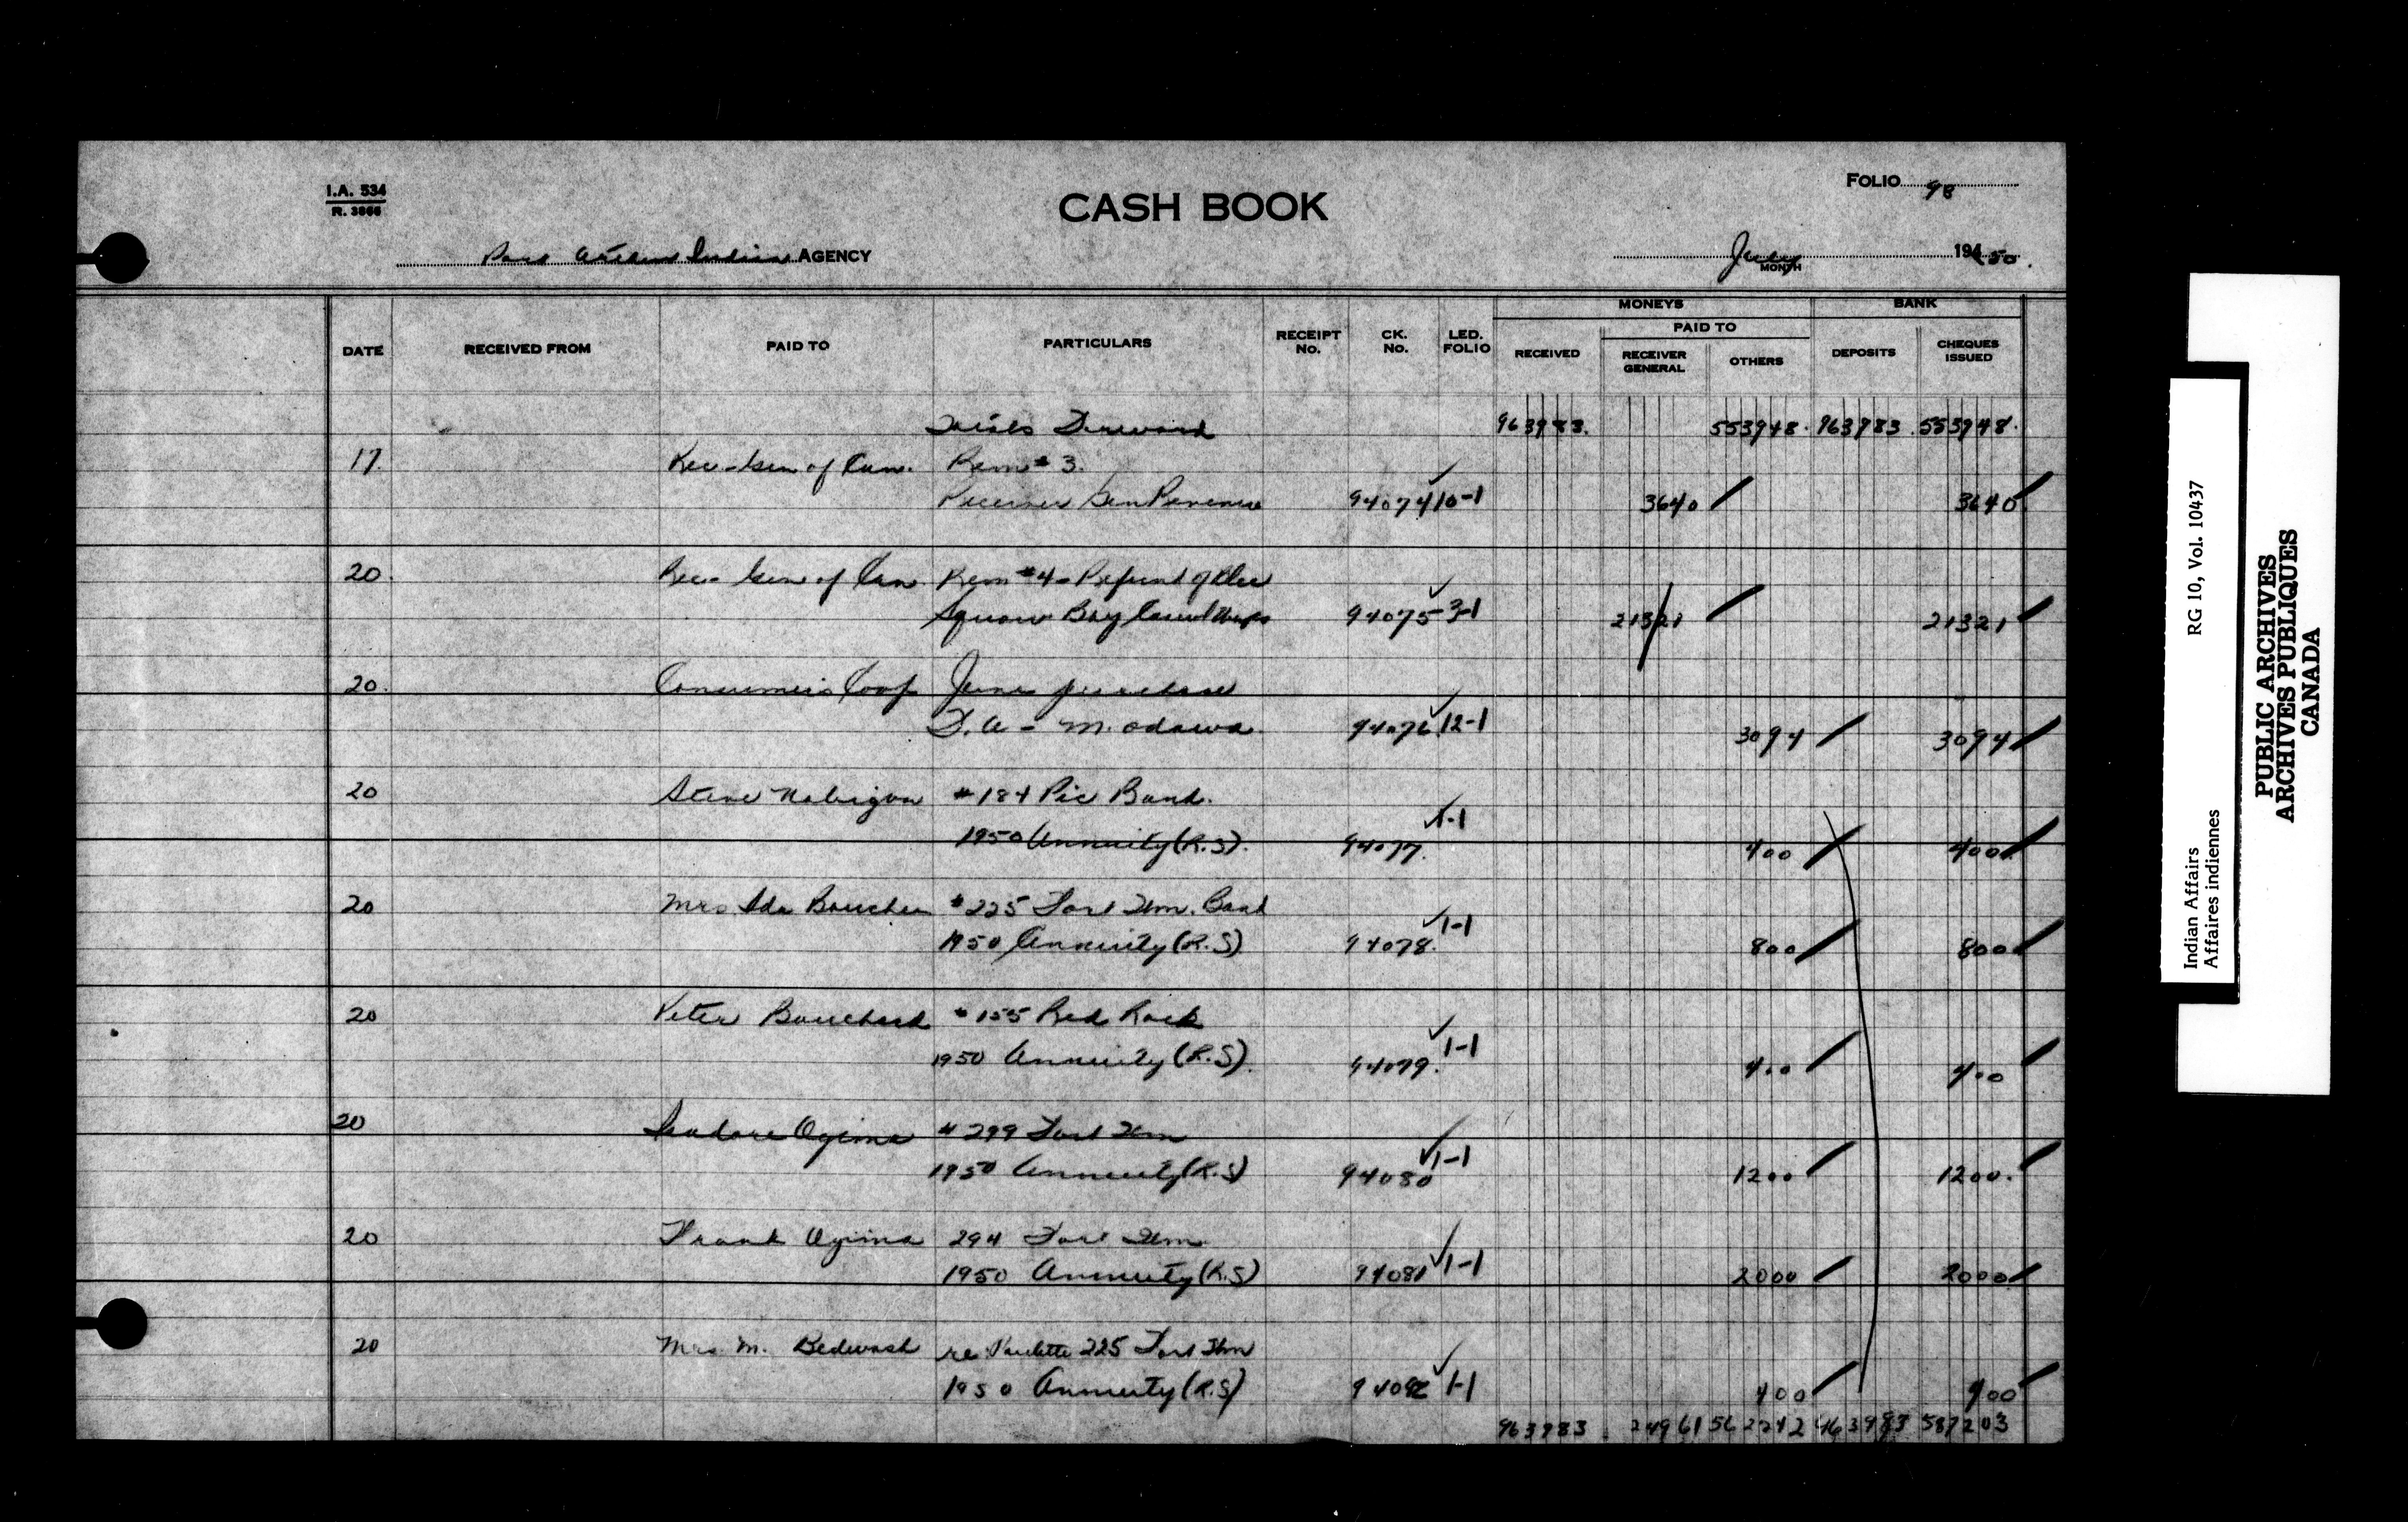 I.A. 534
R. 3866
CASH BOOK
FOLIO 98
Port Arthur Indian AGENCY
July MONTH 1950.
MONEYS BANK
PAID TO
DATE RECEIVED FROM PAID TO PARTICULARS RECEIPT No. CK. No. LED. FOLIO RECEIVED RECEIVER GENERAL OTHERS DEPOSITS CHEQUES ISSUED
Totals Forward 963983. 553948. 963983. 553948.
17. Rec-Gen of Can. Rem # 3.
Receiver Gen 94074 10-1 3640 3640
20. Rec-Gen of Can. Rem #4 - Refund of
Squaw Bay 94075 3-1 21321 21321
20. Consumers Coop June purchase
D.A - M. Odawa 94076 12-1 3094 3094
20 Steve Nabigon #184 Pic Band.
1950 Annuity (R.S). 94077. 1-1 400 400
20 Mrs Ida Boucher #225 Fort Wm. Band
1950 Annuity (R.S) 94078. 1-1 800 800
20 Peter Bouchard #155 Red Rock
1950 Annuity (R.S). 94079. 1-1 400 400
20 Isadore Ogima # 299 Fort Wm
1950 Annuity (R.S) 94080 1-1 1200 1200.
20 Frank Ogima 294 Fort Wm
1950 Annuity (R.S) 94081 1-1 2000 2000
20 Mrs. M. Bedwash re Paulette 225 Fort Wm
1950 Annuity (R.S) 94082 1-1 400 400
963983. 24961 562242 963983 587203
Indian Affairs RG 10, Vol. 10437
Affaires indiennes
PUBLIC ARCHIVES
ARCHIVES PUBLIQUES
CANADA